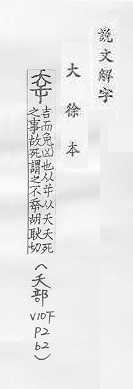 說文解字
大徐本
吉而免凶也从屰从夭夭死
之事故死謂之不㚔胡耿切
(夭部
V10下
P2
b2)